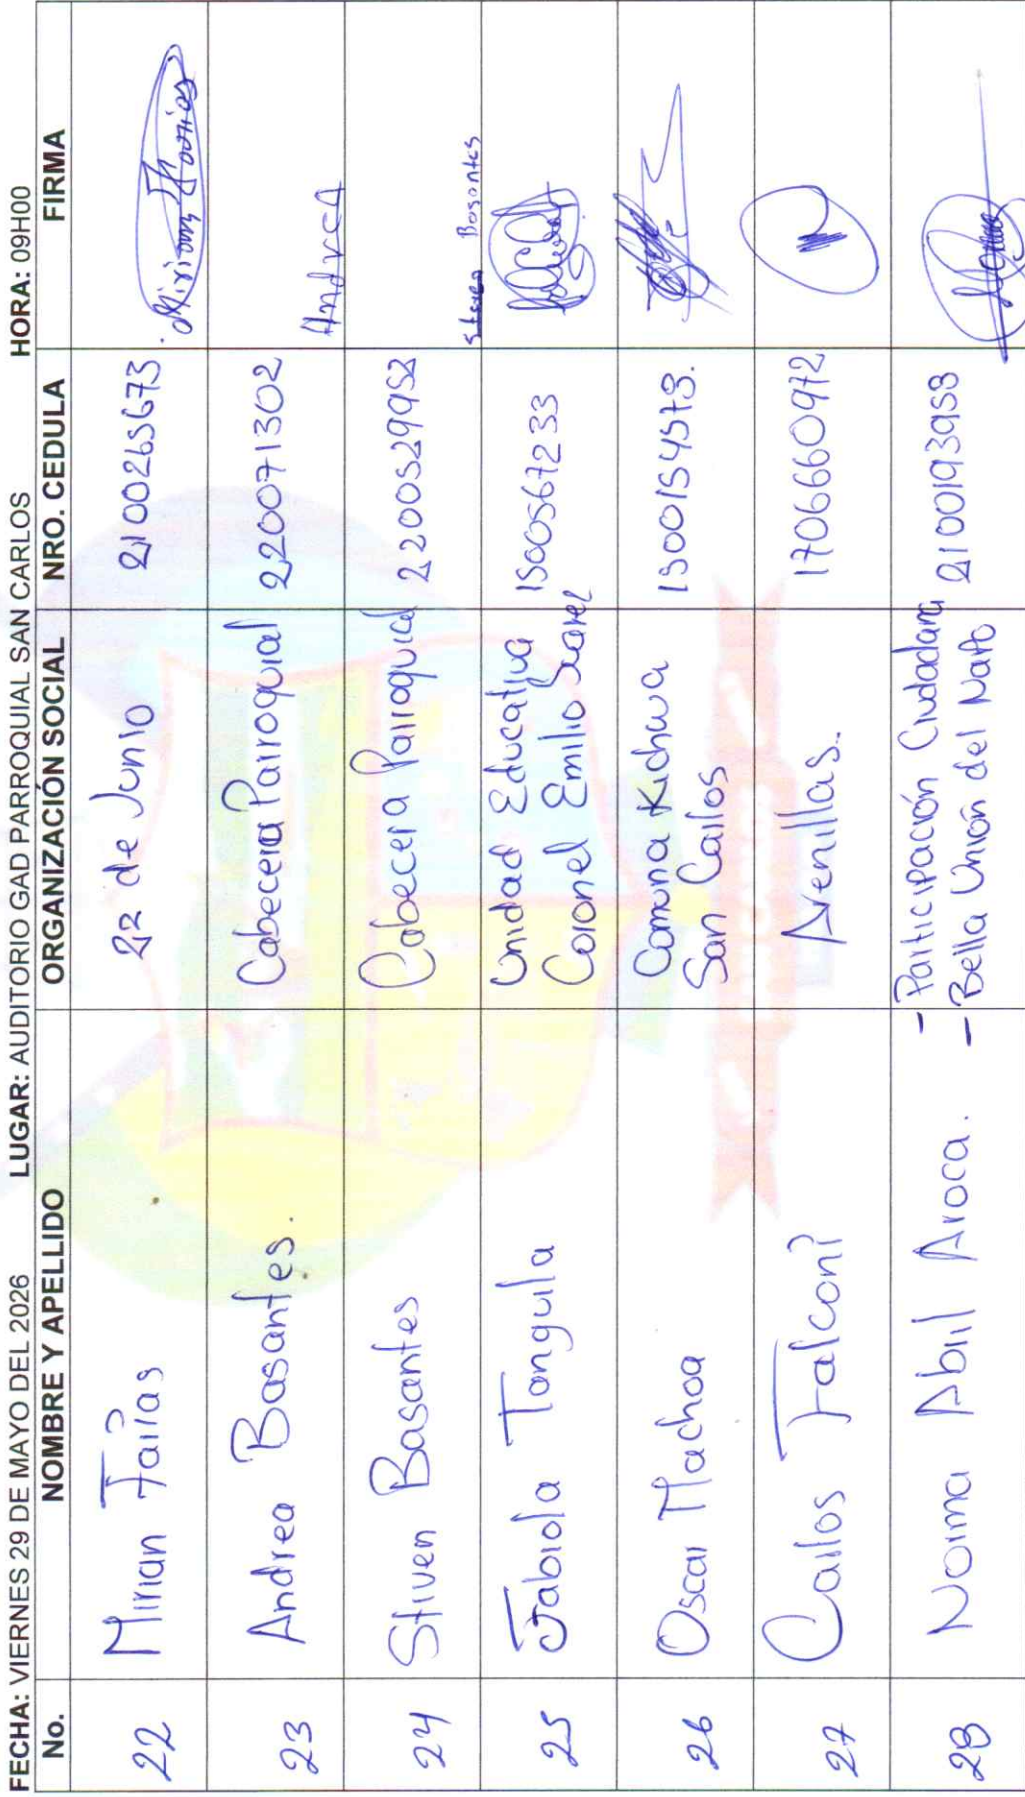 FECHA: VIERNES 29 DE MAYO DEL 2026 LUGAR: AUDITORIO GAD PARROQUIAL SAN CARLOS HORA: 09H00
No. NOMBRE Y APELLIDO ORGANIZACIÓN SOCIAL NRO. CEDULA FIRMA
22 Mirian Farias 22 de Junio 2100265673
23 Andrea Basantes. Cabecera Parroquial 220071302 Andrea
24 Stiven Basantes Cabecera Parroquial 2200529952 Steven Basantes
25 Fabiola Tanguila Unidad Educativa 1500567233
Coronel Emilio Suarez
26 Oscar Machoa Comuna Kichwa 1500154578.
San Carlos
27 Carlos Falconi Arenillas. 1706660972
28 Norma Abril Aroca. - Participación Ciudadana 2100193958
- Bella Unión del Napo